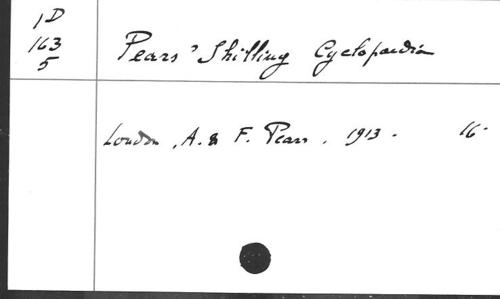 1D
163
5
Pears' Shilling Cyclopaedia
London, A. & F. Pears. 1913. 16°